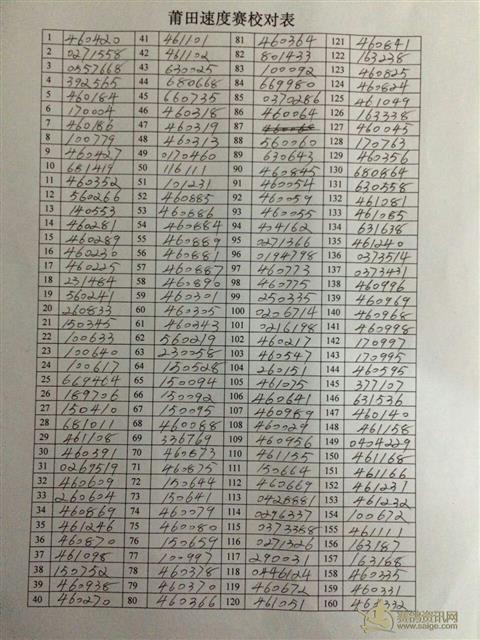 莆田速度赛校对表
1 460420 41 461101 81 460364 121 460841
2 0271558 42 461102 82 801433 122 163238
3 0257668 43 630025 83 100092 123 460825
4 392565 44 680668 84 669980 124 460824
5 460184 45 660735 85 0370286 125 461049
6 170004 46 460318 86 460064 126 163338
7 460186 47 460319 87 127 460045
8 100779 48 460313 88 560060 128 170763
9 460427 49 0170460 89 630643 129 460356
10 681419 50 116111 90 460845 130 680864
11 460352 51 101231 91 460054 131 630558
12 560266 52 460885 92 460059 132 461081
13 140553 53 460886 93 460055 133 461085
14 460281 54 460884 94 404162 134 631638
15 460289 55 460889 95 0271366 135 461240
16 460230 56 460881 96 0194798 136 0373514
17 460225 57 460887 97 460773 137 0373431
18 231484 58 460890 98 460775 138 460996
19 560241 59 460301 99 250335 139 460969
20 260833 60 460305 100 0206714 140 460968
21 150345 61 460343 101 0216198 141 460998
22 100633 62 560219 102 460217 142 170997
23 100640 63 230058 103 460547 143 170995
24 100617 64 150528 104 260151 144 460595
25 669464 65 150094 105 461075 145 377107
26 189706 66 150092 106 460641 146 631536
27 150410 67 150095 107 460989 147 460140
28 681011 68 460088 108 460029 148 461158
29 461108 69 336769 109 460956 149 0404229
30 460391 70 460873 110 461155 150 461168
31 0269519 71 460875 111 150664 151 461166
32 460609 72 150644 112 460669 152 461231
33 260604 73 150641 113 0428881 153 461232
34 460869 74 460079 114 0296337 154 100672
35 461246 75 460080 115 0373388 155 461111
36 460870 76 150659 116 0271326 156 163187
37 461098 77 100997 117 290031 157 163188
38 150752 78 460378 118 0446124 158 460335
39 460938 79 460370 119 460672 159 460331
40 460270 80 460366 120 461051 160 460332
赛鸽资讯网
www.saige.com